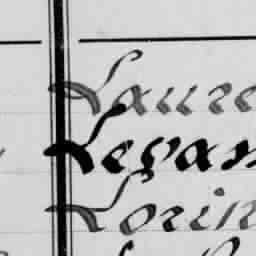 Laure
Levan
Lorin